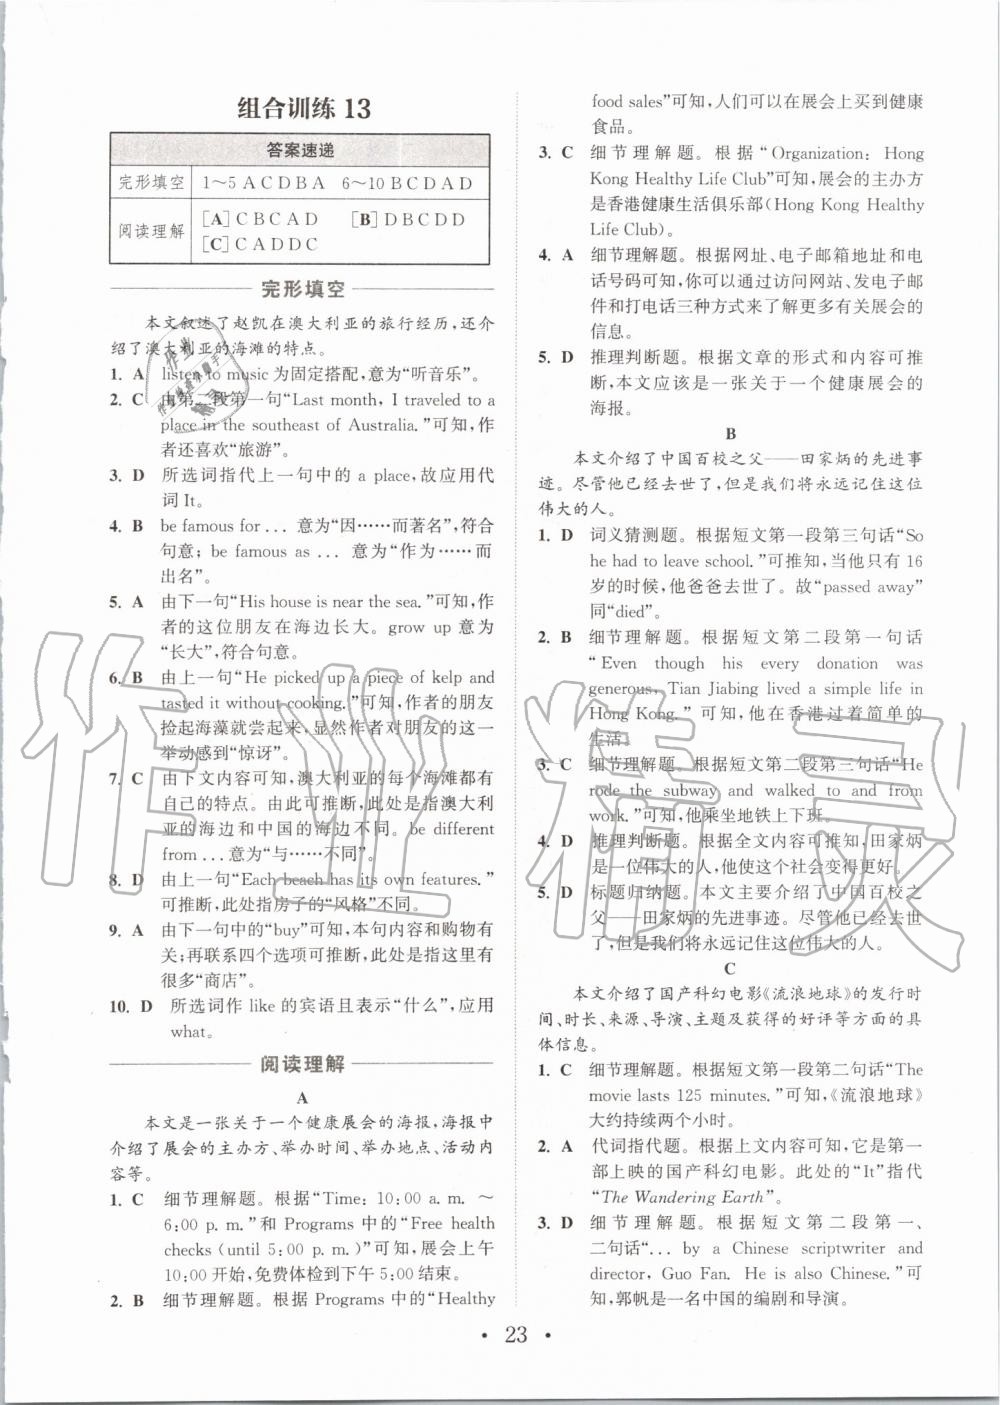 组合训练 13
答案速递
完形填空 1～5 A C D B A 6～10 B C D A D
阅读理解 [A] C B C A D [B] D B C D D
[C] C A D D C
完形填空
本文叙述了赵凯在澳大利亚的旅行经历,还介
绍了澳大利亚的海滩的特点。
1. A listen to music为固定搭配,意为“听音乐”。
2. C 由第二段第一句“Last month, I traveled to a
place in the southeast of Australia.”可知,作
者还喜欢“旅游”。
3. D 所选词指代上一句中的 a place,故应用代
词It。
4. B be famous for... 意为“因……而著名”,符合
句意；be famous as ... 意为“作为……而
出名”。
5. A 由下一句“His house is near the sea.”可知,作
者的这位朋友在海边长大。grow up 意为
“长大”,符合句意。
6. B 由上一句“He picked up a piece of kelp and
tasted it without cooking.”可知,作者的朋友
捡起海藻就尝起来,显然作者对朋友的这一
举动感到“惊讶”。
7. C 由下文内容可知,澳大利亚的每个海滩都有
自己的特点。由此可推断,此处是指澳大利
亚的海边和中国的海边不同。be different
from ...意为“与……不同”。
8. D 由上一句“Each beach has its own features.”
可推断,此处指房子的“风格”不同。
9. A 由下一句中的“buy”可知,本句内容和购物有
关；再联系四个选项可推断,此处指的是有
很多“商店”。
10. D 所选词作 like 的宾语且表示“什么”,应用
what。
阅读理解
A
本文是一张关于一个健康展会的海报,海报中
介绍了展会的主办方、举办时间、举办地点、活动内
容等。
1. C 细节理解题。根据“Time: 10:00 a. m. ～
6:00 p. m.”和 Programs 中的“Free health
checks (until 5:00 p. m.)”可知,展会上午
10:00 开始,免费体检到下午 5:00 结束。
2. B 细节理解题。根据 Programs 中的“Healthy
food sales”可知,人们可以在展会上买到健康
食品。
3. C 细节理解题。根据“Organization: Hong
Kong Healthy Life Club”可知,展会的主办方
是香港健康生活俱乐部(Hong Kong Healthy
Life Club)。
4. A 细节理解题。根据网址、电子邮箱地址和电
话号码可知,你可以通过访问网站、发电子邮
件和打电话三种方式来了解更多有关展会的
信息。
5. D 推理判断题。根据文章的形式和内容可推
断,本文应该是一张关于一个健康展会的
海报。
B
本文介绍了中国百校之父——田家炳的先进事
迹。尽管他已经去世了,但是我们将永远记住这位
伟大的人。
1. D 词义猜测题。根据短文第一段第三句话“So
he had to leave school.”可推知,当他只有 16
岁的时候,他爸爸去世了。故“passed away”
同“died”。
2. B 细节理解题。根据短文第二段第一句话
“Even though his every donation was
generous, Tian Jiabing lived a simple life in
Hong Kong.” 可知,他在香港过着简单的
生活。
3. C 细节理解题。根据短文第二段第三句话“He
rode the subway and walked to and from
work.”可知,他乘坐地铁上下班。
4. D 推理判断题。根据全文内容可推知,田家炳
是一位伟大的人,他使这个社会变得更好。
5. D 标题归纳题。本文主要介绍了中国百校之
父——田家炳的先进事迹。尽管他已经去世
了,但是我们将永远记住这位伟大的人。
C
本文介绍了国产科幻电影《流浪地球》的发行时
间、时长、来源、导演、主题及获得的好评等方面的具
体信息。
1. C 细节理解题。根据短文第一段第二句话“The
movie lasts 125 minutes.”可知,《流浪地球》
大约持续两个小时。
2. A 代词指代题。根据上文内容可知,它是第一
部上映的国产科幻电影。此处的“It”指代
“The Wandering Earth”。
3. D 细节理解题。根据短文第二段第一、
二句话“... by a Chinese scriptwriter and
director, Guo Fan. He is also Chinese.”可
知,郭帆是一名中国的编剧和导演。
· 23 ·
作业精灵